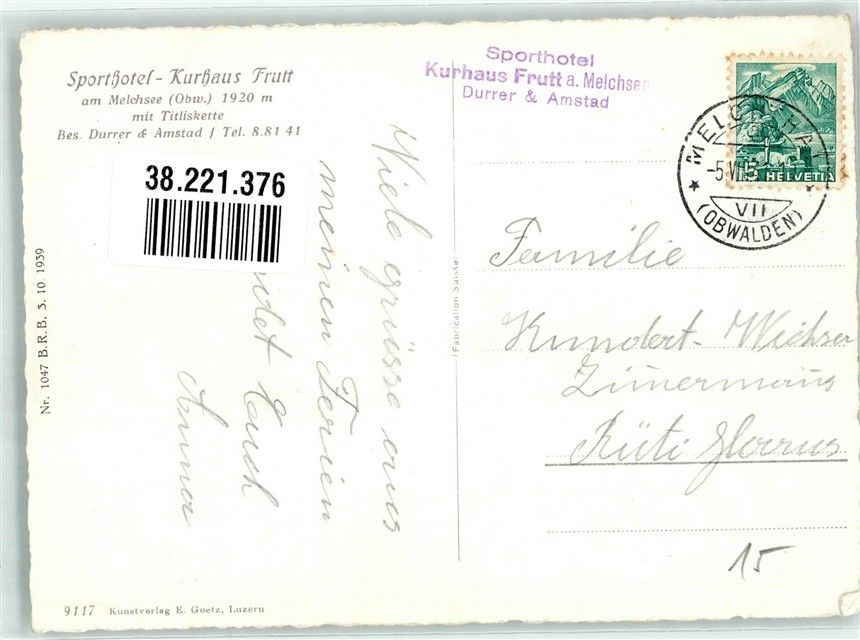 Sporthotel - Kurhaus Frutt
am Melchsee (Obw.) 1920 m
mit Titliskette
Bes. Durrer & Amstad / Tel. 8.81 41
38.221.376
Nr. 1047 B.R.B. 3. 10. 1939
Viele Grüsse aus
meinen Ferien
Euch
9117 Kunstverlag E. Goetz, Luzern
Fabrication Suisse
Sporthotel
Kurhaus Frutt a. Melchsee
Durrer & Amstad
HELVETIA
5
MELCHTHAL
-5.VII
VII
(OBWALDEN)
Familie
Kundert - Wichser
Rüti Glarus
15